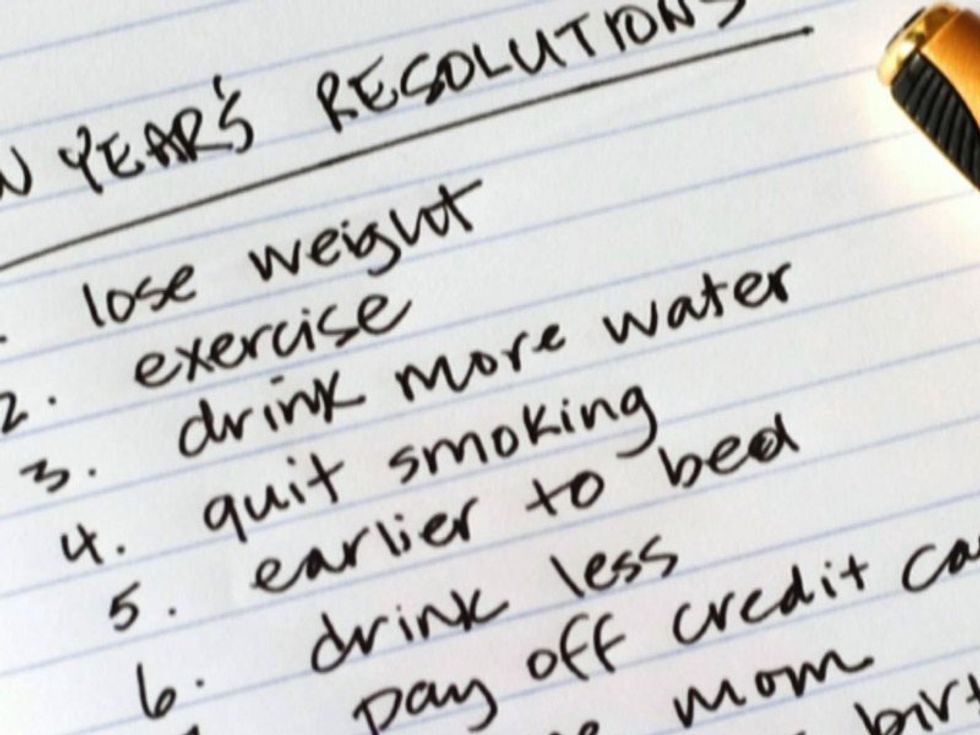 YEAR'S RESOLUTIONS
lose weight
2. exercise
3. drink more water
4. quit smoking
5. earlier to bed
6. drink less
pay off credit
mom